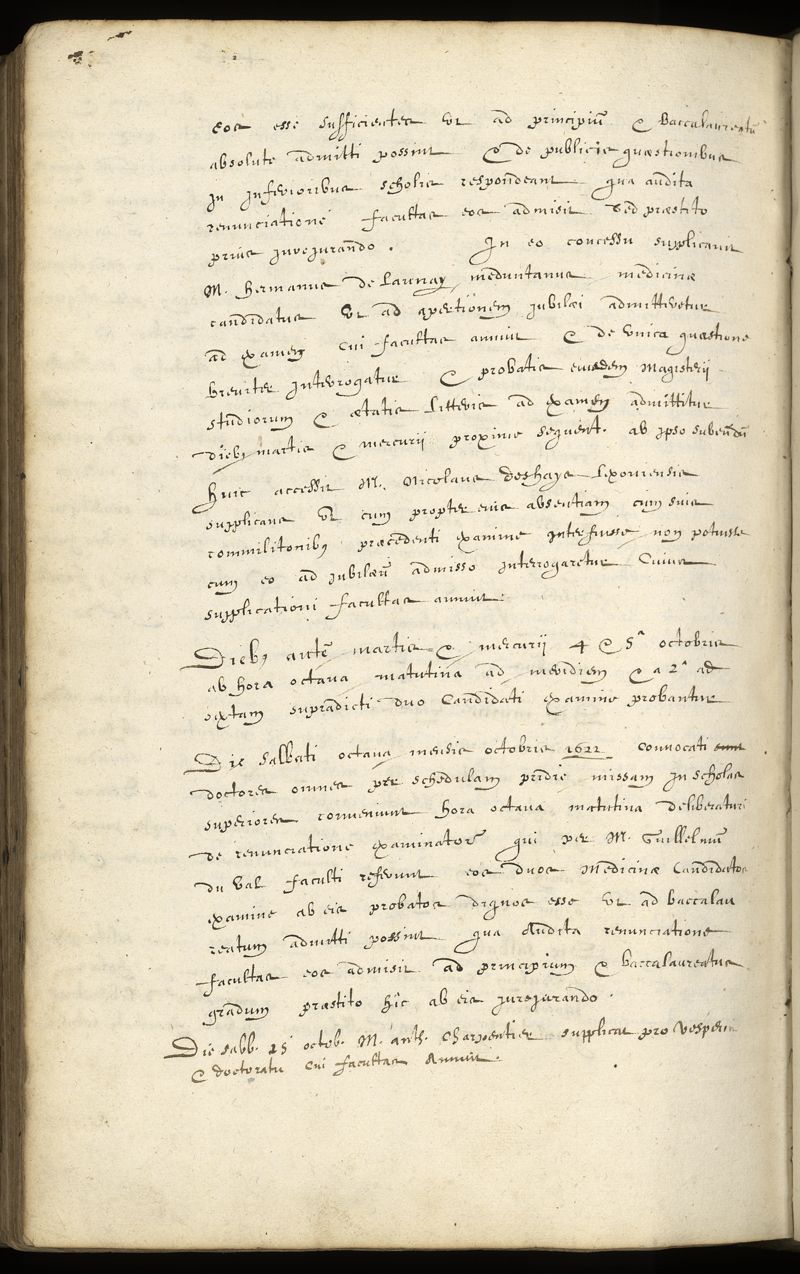 eos esse sufficientes ut ad principiū & Baccalaureatū
absolute admitti possint & de publicis quæstionibus
in inferioribus scholis respondeant qua audita
renunciationē facultas eos admisit sed præstito
prius jurejurando . In eo concessu supplicavit
M. Hermanus De Launay meduntanus medicinæ
candidatus ut ad apertionem jubilæi admitteretur
ad examen cui facultas annuit & de unica quæstione
breviter interrogatur & probatis eiusdem Magisterii
studiorum & ætatis litteris ad examen admittitur
diebꝫ martis & mercurii proxime sequent. ab ipso subeūdū
huic accessit M. Nicolaus deshays Lexoviensis
supplicans ut cum propter eius absentiam cum suis
commilitonibꝫ præcedenti examine interfuisse non potuisse
cum eo ad jubilæū admisso interrogaretur Cuius
supplicationi facultas annuit.
Diebꝫ autē martis & mercurii 4 & 5ᵃ octobris
ab hora octava matutina ad meridiem & a 2ᵃ ad
sextam supradicti duo Candidati examine probantur
Die sabbati octava mensis octobris 1622 Convocati sunt
doctores omnes per schedulam pridie missam in scholas
superiores conveniunt hora octava matutina deliberaturi
de renunciatione examinatorū qui per M. Guillelmū
du Val facultī referunt eos duos Medicinæ Candidatos
examine ab eis probatos dignos esse ut ad baccalau
reatum admitti possint qua Audita renunciatione
facultas eos admisit ad principium & baccalaureatus
gradum præstito hîc ab eis jurejurando .
Die sabb. 15 octob. M. anth. Charpentier supplicat pro Vesperiis
& doctoratu Cui facultas Annuit .